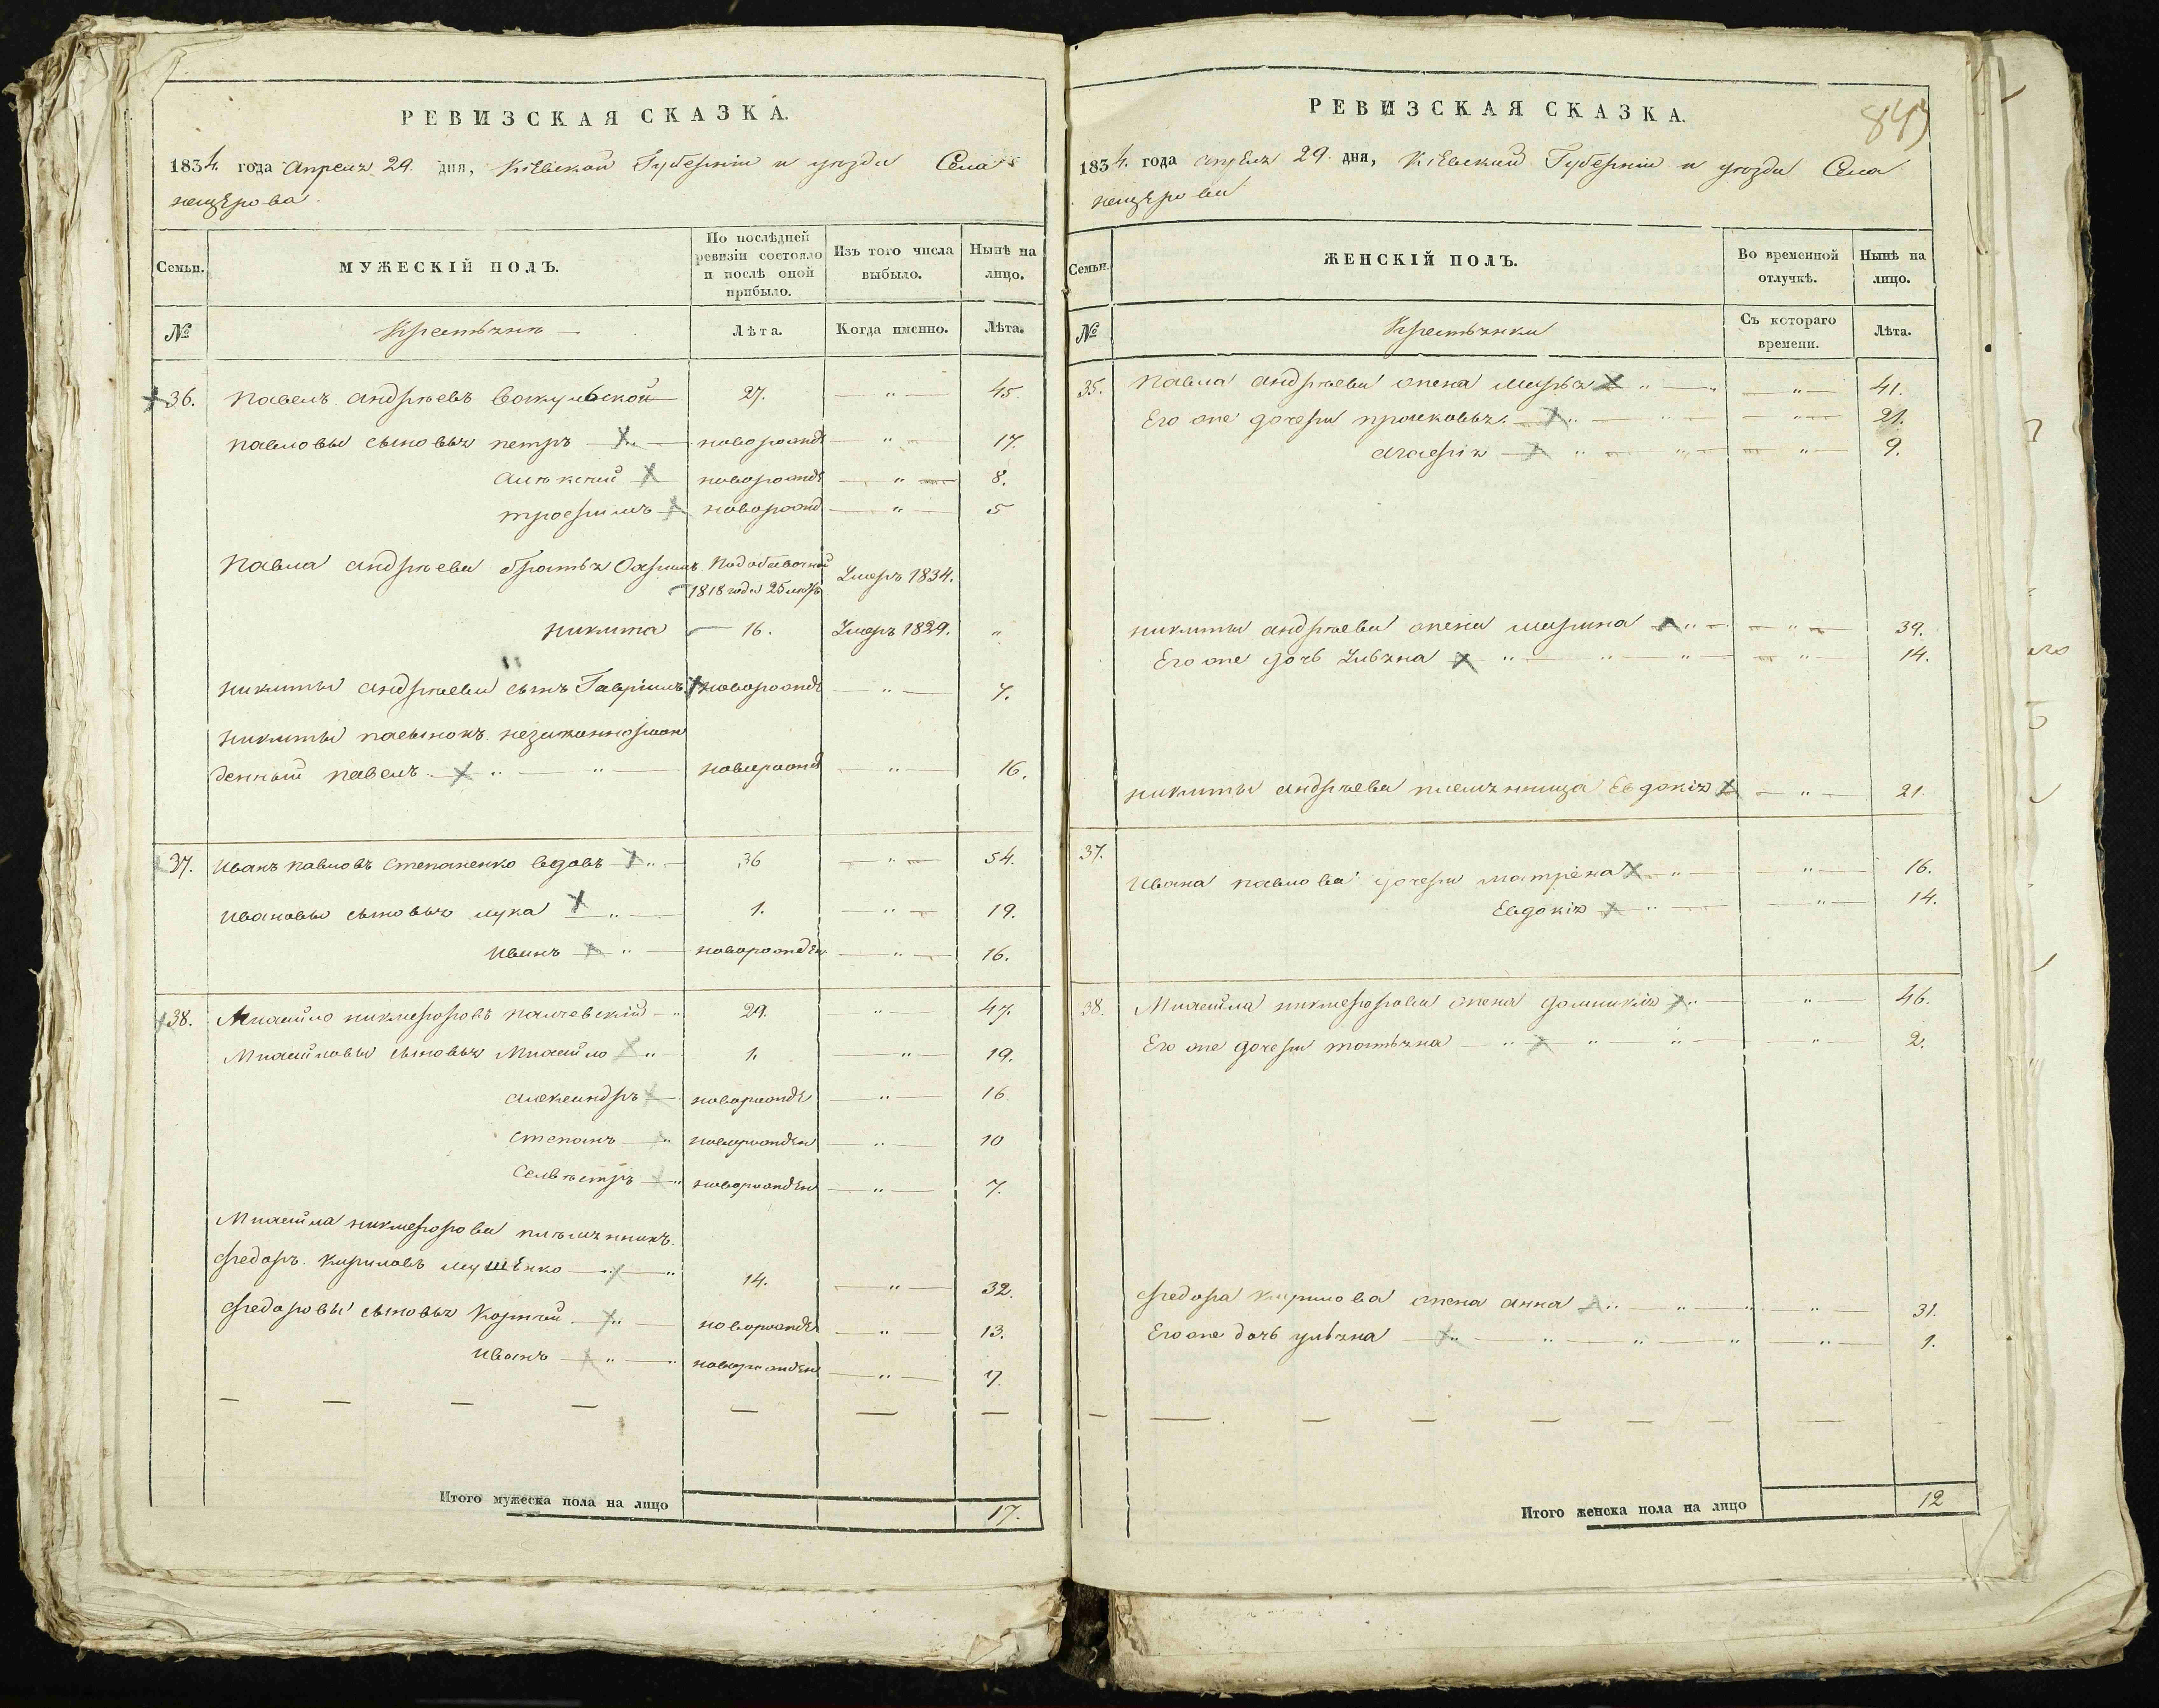 РЕВИЗСКАЯ СКАЗКА.
1834. года Апреля 29. дня, Кіевской Губерніи и уезда Села
нещерова.
Семьи.
МУЖЕСКІЙ ПОЛЪ.
По послѣдней ревизіи состояло и послѣ оной прибыло.
Изъ того числа выбыло.
Нынѣ на лицо.
№
Крестьянѣ
Лѣта.
Когда именно.
Лѣта.
36. Павелъ андрѣевъ 27. — " — 45.
павловы сыновья петръ новорожде — " — 17.
Алѣксѣй новорожде — " — 8.
трофимъ новорожд — " — 5
Павла андрѣева братья 1818 года 25 Умеръ 1834.
никита 16. Умеръ 1829. "
никиты андрѣева сынъ Гавріилъ новорожде — " — 7.
никиты пасынокъ незаконнорож
денный павелъ новорожд — " — 16.
37. Иванъ павловъ Степаненко вдовъ 36 — " — 54.
Ивановы сыновья лука 1. " — 19.
Иванъ новорожден — " — 16.
38. Михайло никифоровъ 29. " — 47.
Михайловы сыновья Михайло 1. " — 19.
александръ новорожде — " — 16.
степанъ новорожден " — 10
Селвѣстръ новорожден — " — 7.
Михайла никифорова плѣмянникъ
Федоръ Кириловъ 14. — " — 32.
Федоровы сыновья Корнѣй новорожде — " — 13.
Иванъ новорожден — " — 9.
Итого мужеска пола на лицо 17.
849
РЕВИЗСКАЯ СКАЗКА.
1834. года апреля 29. дня, Кіевской Губерніи и уезда Села
нещерова
Семьи.
ЖЕНСКІЙ ПОЛЪ.
Во временной отлучкѣ.
Нынѣ на лицо.
№
Крестьянки
Съ котораго времени.
Лѣта.
35. Павла андрѣева жена Марья — " — 41.
Его же дочери прасковья — " — 21.
агафія — " — 9.
никиты андрѣева жена марина — " — 39.
Его же дочь Улияна — " 14.
никиты андрѣева племянница Евдокія — " — 21.
37.
Ивана павлова дочери матрена — " — 16.
Евдокія — " — 14.
38. Михайла никифорова жена домникія " 46.
Его же дочери татьяна " 2.
Федора Кирилова жена анна " — 31.
Его же дочь улияна — " — 1.
Итого женска пола на лицо 12